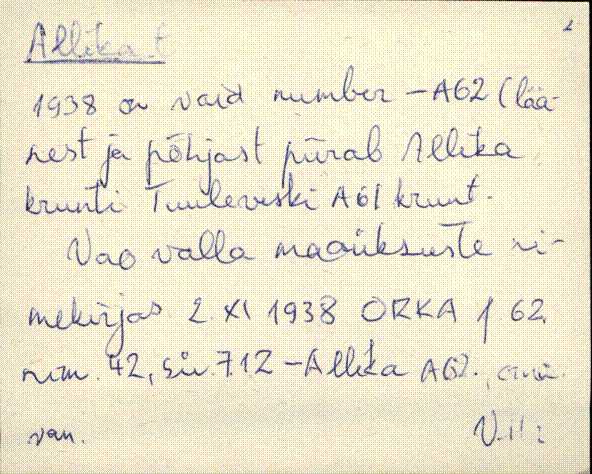 2
Allika t
1938 on vaid number - A62 (lää-
nest ja põhjast piirab Allika
krunti Tuuleveski A61 krunt.
Vao valla maaüksuste ni-
mekirjas 2. XI 1938 ORKA f 62,
nim. 42, säi. 712 - Allika A62.,
van.